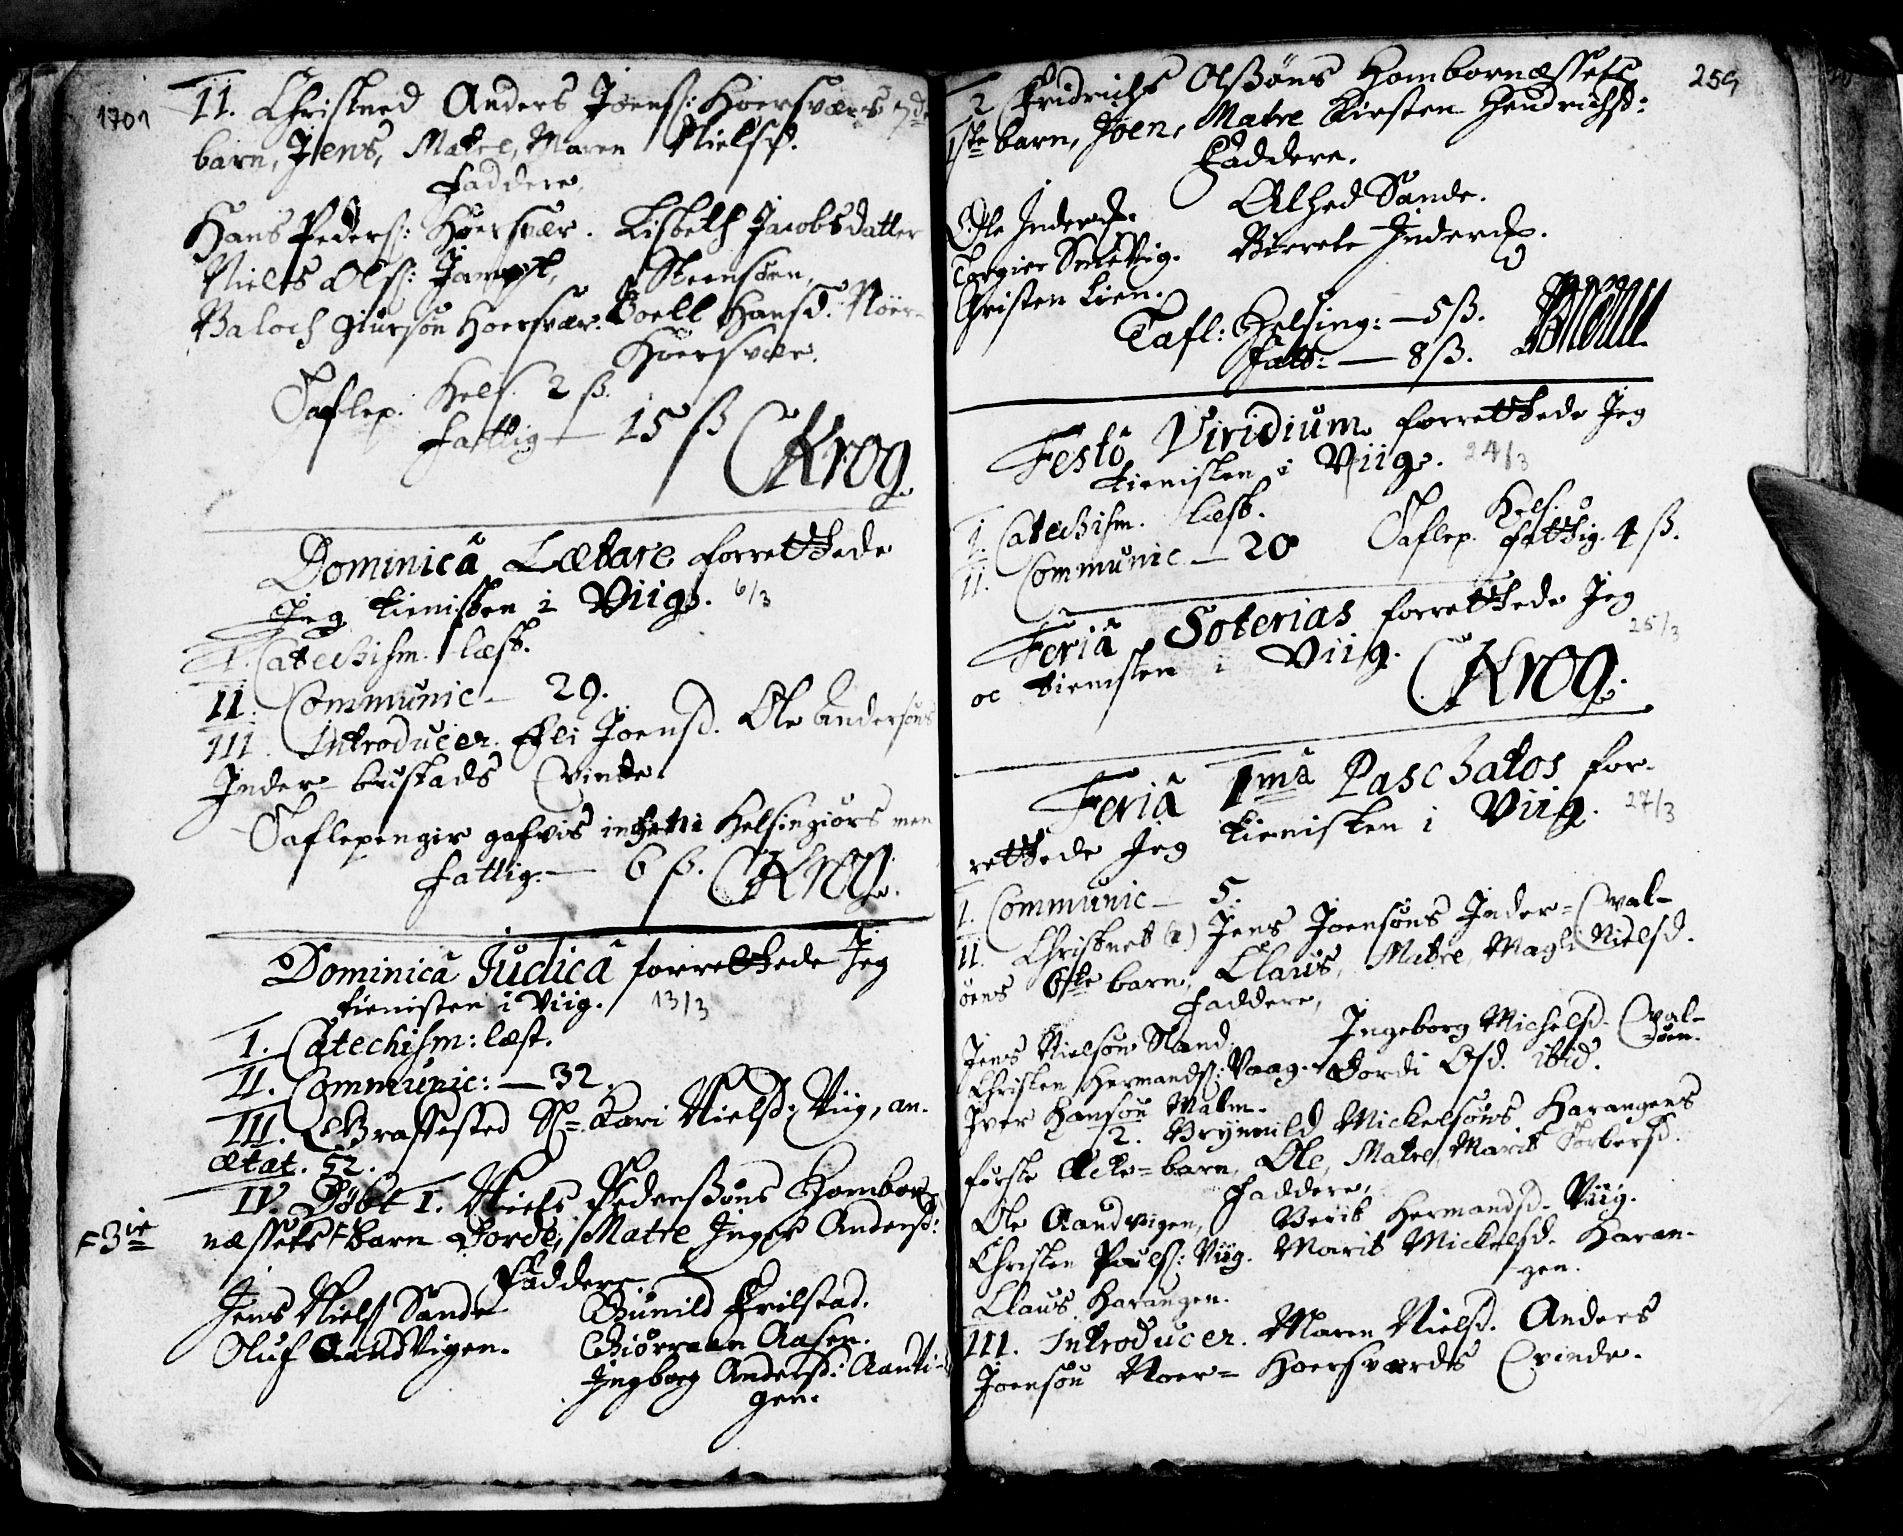 1701
II. Christned Anders Joens: Hoersværs 7de
barn, Jens, Matre, Maren Nielsd.
Faddere,
Hans Peders: Hoersvær. Lisbeth Jacobsdatter
Niels Ols:
Steensøen,
Baloch Giursøn Hoersvær. Boell Hansd. Noer-
Hoersvær.
Taflep. Hels. 2 ß.
fattig — 15 ß CKrog.
Dominicâ Lætare forrettede
Jeg tienisten i Viig. 6/3
I. Catechism. læst.
II. Communic — 29.
III. Introducer. Eli Joensd. Ole Andersøns
Inder-bustads Qvinde.
Taflepenger gafvis intet til Helsingiørs men
fattig. — 6 ß. CKrog.
Dominicâ Judicâ forrettede Jeg
tienisten i Viig. 13/3
I. Catechism: læst.
II. Communic: — 32.
III. Græssted Sl. Kari Nielsd: Viig, an.
ætat. 52.
IV. Døbt 1. Niels Pederßøns Hombor-
F 3ie
næssets F barn Dorde, Matre Inger Andersd:
Faddere
Jens Niels Sande Gunild Erilstad.
Oluf Aandvigen. Giørraan Aasen.
Ingborg Andersd: Aanvi-
gen.
259
2 Fridrichs Olßøns Hombornæssets
1ste barn, Joen, Matre Kirsten Hendrichsd:
Faddere.
Ole Alhed Sande.
Torgier Birrete
Christen Lien.
Tafl: Helsing: — 5 ß.
Fatt: — 8 ß.
Festô Viridium forrettede Jeg
tienisten i Viig. 24/3
I. Catechism. læst. Hels.
II. Communic — 20 Taflep. fattig. 4 ß.
Feriâ Soterias forrettede Jeg
oc tienisten i Viig. 25/3
CKrog.
Feriâ 1mâ Paschatos for-
rettede Jeg tienisten i Viig. 27/3
I. Communic — 5.
II. Christnet (1.) Jens Joensøns Inder-Qval-
øens 6te barn, Claus, Matre, Magli Nielsd.
Faddere,
Jens Nielsøn Sand. Ingeborg Michelsd. Qval-
øen.
Christen Hermands: Vaag. Dordi Osd. ibid.
Iver Hansøn Malm.
2. Brynnild Mickelsøns Harangens
første Ecte-barn, Ole, Matre, Marit Torbersd.
Faddere,
Ole Aandvigen, Berit Hermandsd. Viig.
Christen Pouls: Viig. Marit Mickelsd. Haran-
gen.
Claus Harangen.
III. Introducer. Maren Nielsd. Anders
Joensøn Noer-Hoersværds Qvinde.